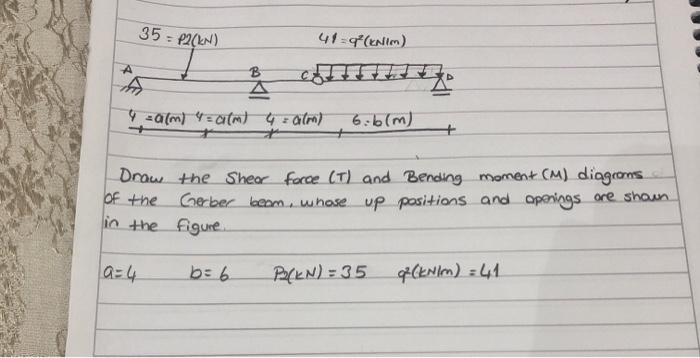 35 = P2(kN)
41 = q²(kN/m)
A
B
C
D
4 = a(m) 4 = a(m) 4 = a(m) 6 : b(m)
Draw the Shear force (T) and Bending moment (M) diagrams
of the Gerber beam, whose up positions and openings are shown
in the figure.
a=4 b=6 P2(kN) = 35 q²(kN/m) = 41